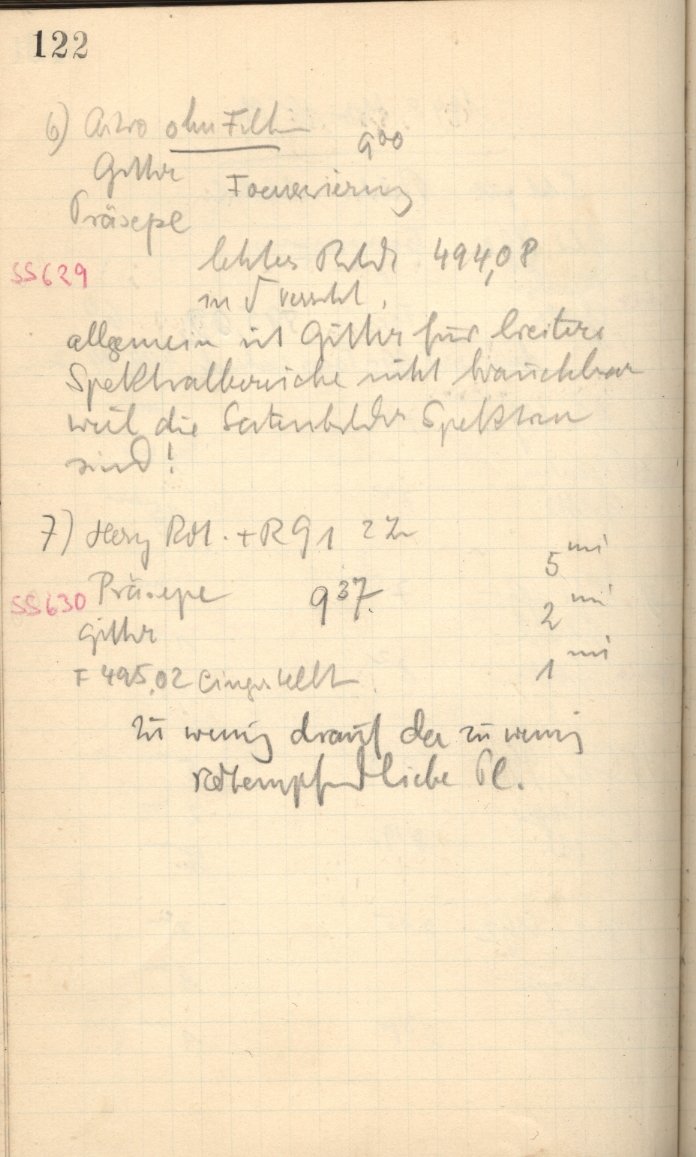 122
6) Astro ohne Filter 9⁰⁰
Gitter Focussierung
Präsepe
SS629 letztes Bild 494,08
in √ versetzt.
allgemein ist Gitter für breitere
Spektralbereiche nicht brauchbar
weil die Seitenbilder Spektren
sind!
7) Herz Rot. + RG1 2Z
5 mi
SS630 Präsepe 9³⁷. 2 mi
Gitter
F 495,02 eingestellt 1 mi
zu wenig drauf da zu wenig
rotempfindliche Pl.